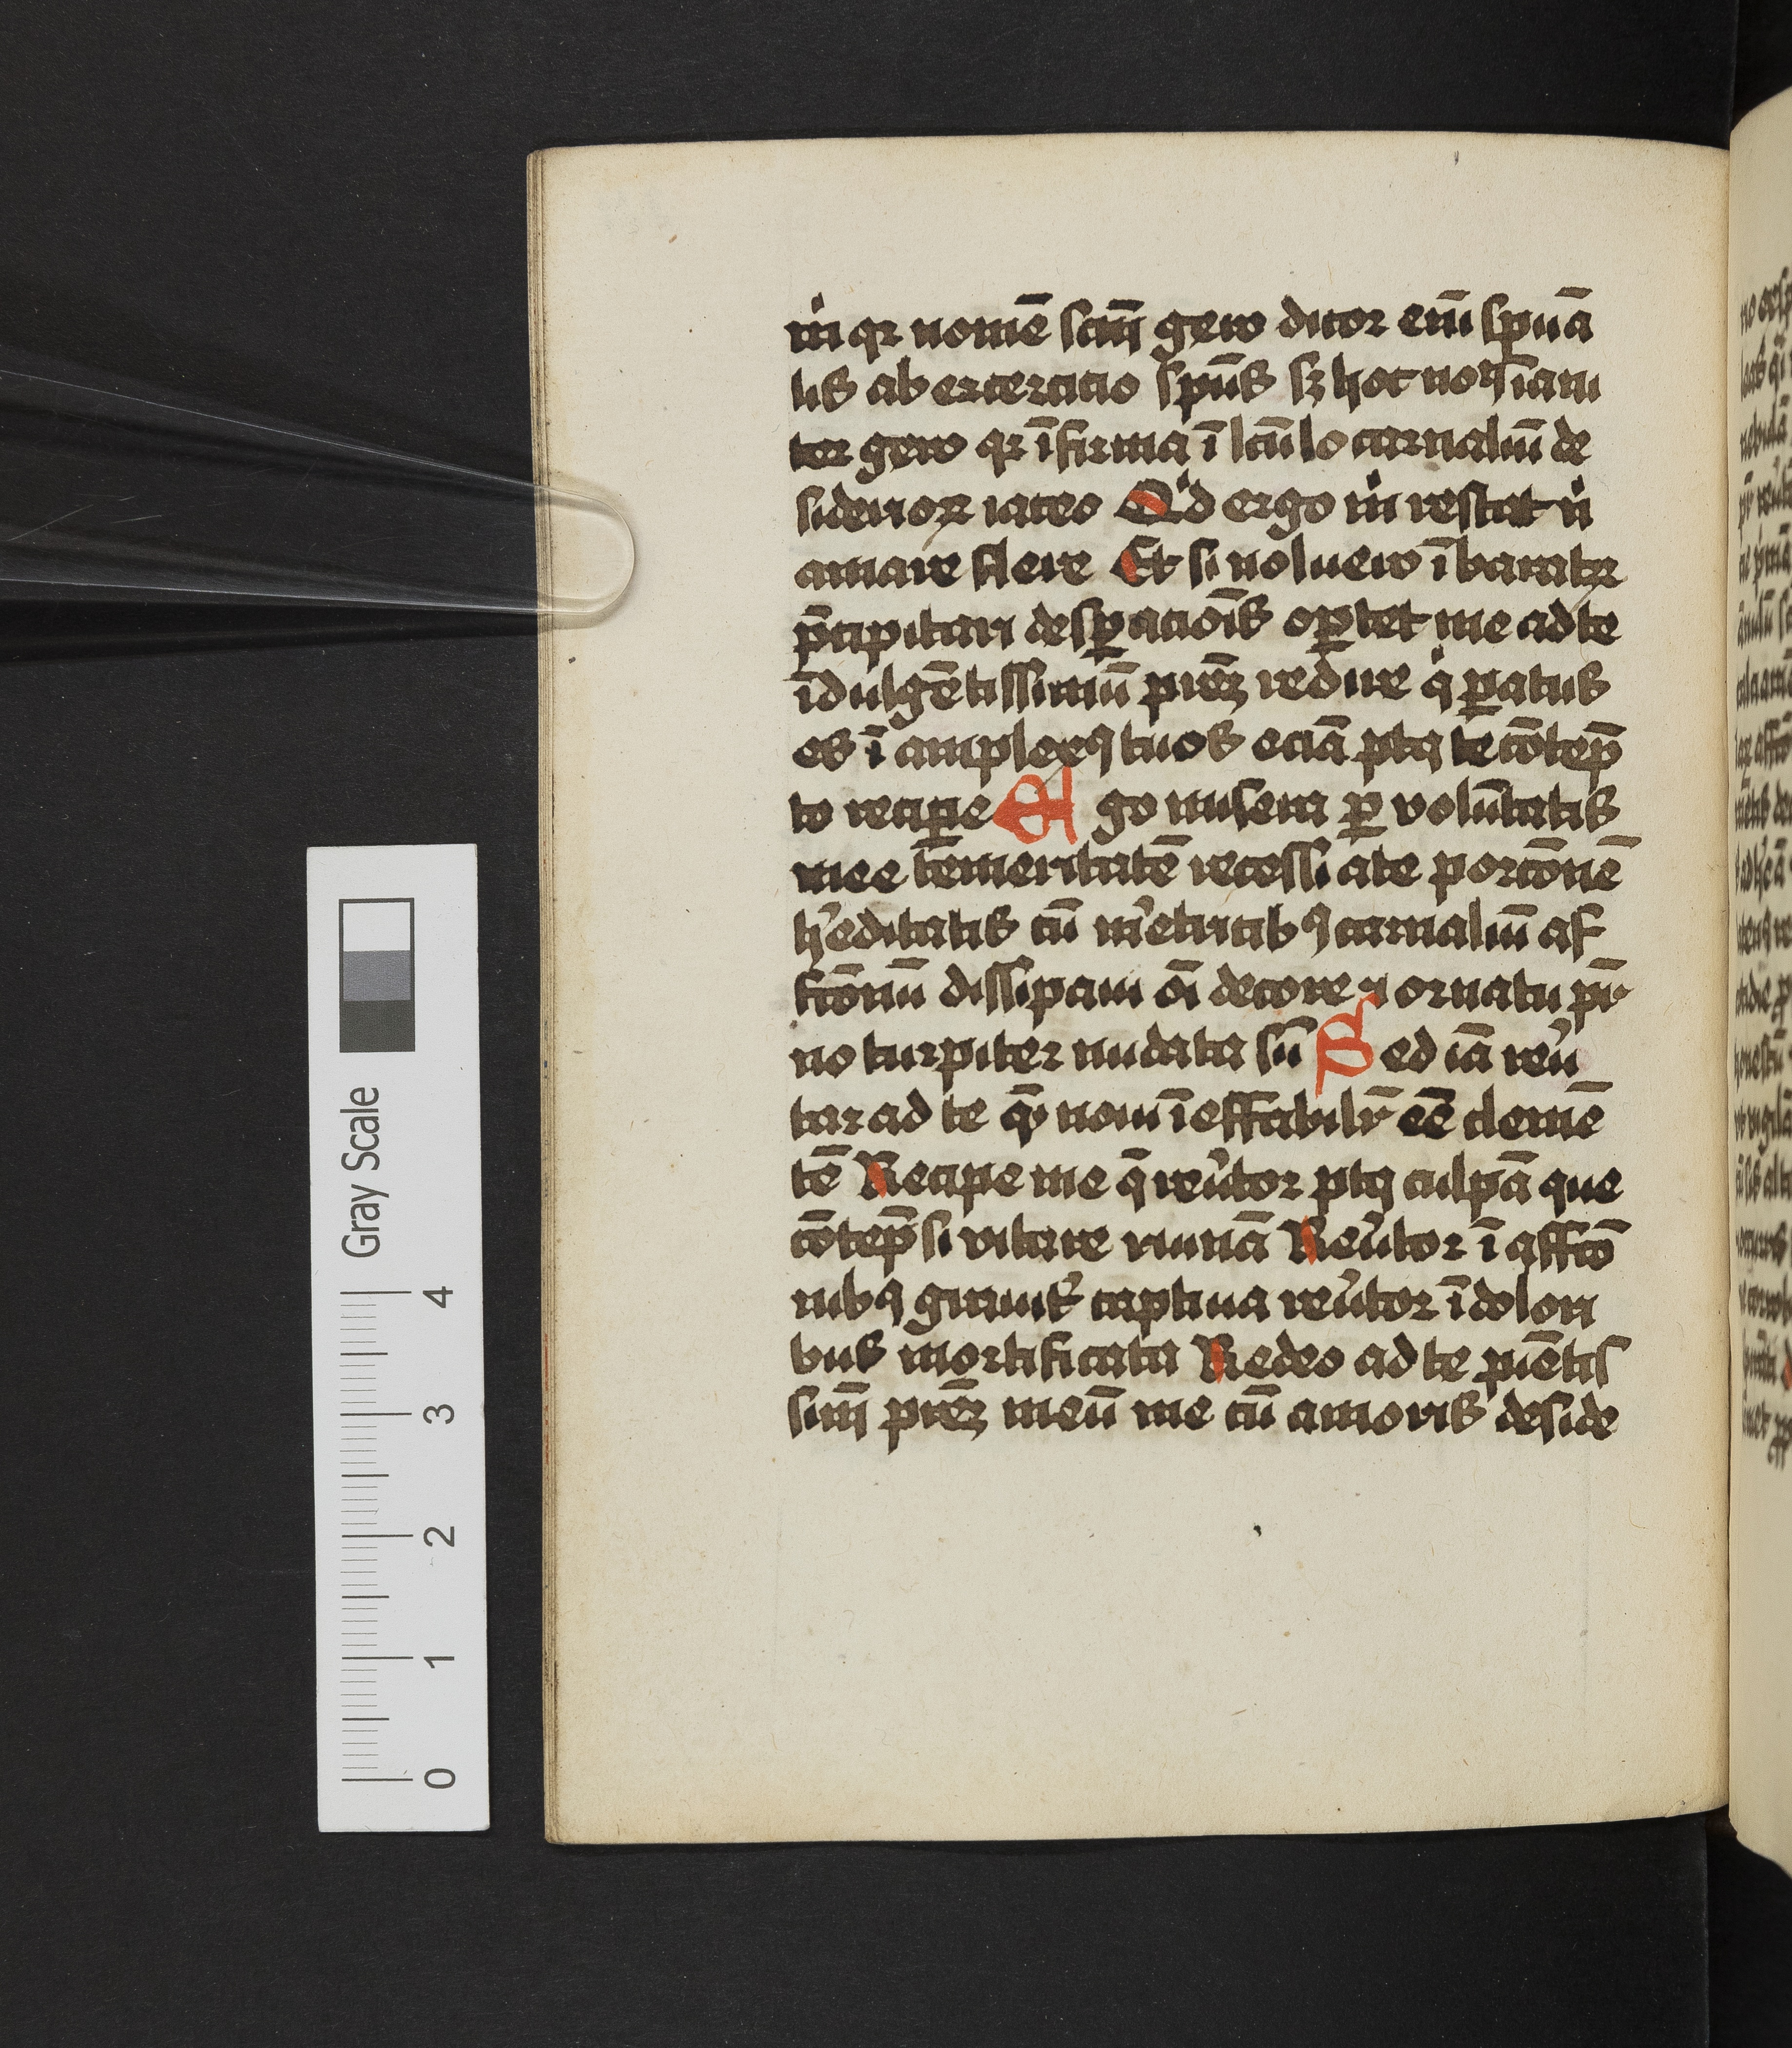 m̄ qr nomē scm̄ gero dicor em̄ spūa
lis ab exercitio spūs sz hoc noīa īani
ter gero qr īfirma ī lcūlo carnaliū de
siderioꝝ iaceo Qͥd ergo m̊ restat nͥ
amare flere Et si noluero ī baratꝝ
p̄cipitari despꝑacōis optet me ad te
īdulgētissimū prēz redire qͥ ꝑatus
es ī amplexꝰ tuos eciā ptꝙ te cōtēp
to recipe Ego misera ꝑ volūtatis
mee tēmeritatē recessi a te porcōnē
h̓editatis cū m̓etricibꝰ carnaliū af
fcōnū dissipaui oī decore ⁊ ornatu pr̄
no turpiter nudata sū Sed iā reu̓
tar ad te qm̄ noui īeffabilr̄ eē clemē
tē Recipe me q̄ reu̓tor ptꝙ culpā que
cōtēpsi vitare ruinā Reu̓tor ī affcō
nibꝰ grauit̓ captiua reu̓tor ī dolori
bus mortificata Redeo ad te piētis
simū prēz meū me cū amoris deside
Gray Scale
4
3
2
1
0